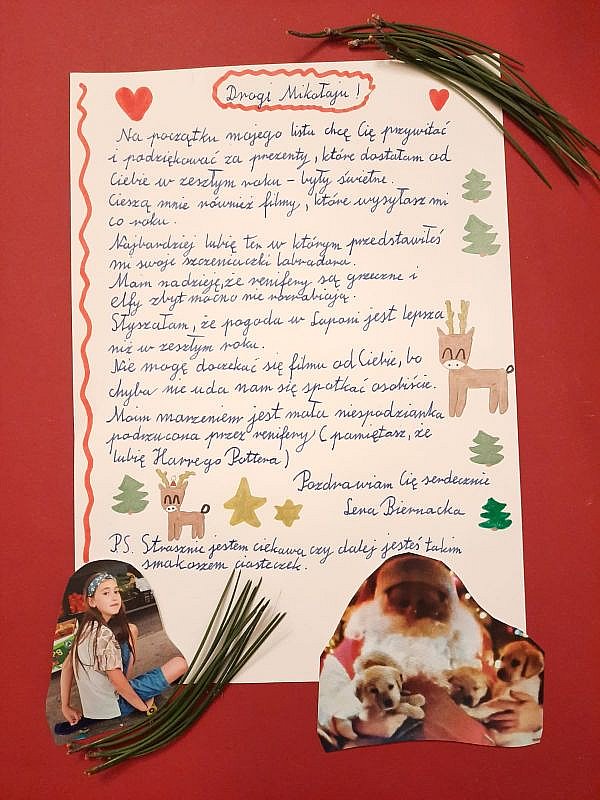 Drogi Mikołaju!
Na początku mojego listu chcę Cię przywitać
i podziękować za prezenty, które dostałam od
Ciebie w zeszłym roku - były świetne.
Cieszą mnie również filmy, które wysyłasz mi
co roku.
Najbardziej lubię ten w którym przedstawiłeś
mi swoje szczeniaczki labradora.
Mam nadzieję, że renifery są grzeczne i
elfy zbyt mocno nie rozrabiają.
Słyszałam, że pogoda w Laponi jest lepsza
niż w zeszłym roku.
Nie mogę doczekać się filmu od Ciebie, bo
chyba nie uda nam się spotkać osobiście.
Moim marzeniem jest mała niespodzianka
podrzucona przez renifery (pamiętasz, że
lubię Harrego Pottera)
Pozdrawiam Cię serdecznie
Lena Biernacka
PS. Strasznie jestem ciekawa czy dalej jesteś takim
smakoszem ciasteczek.